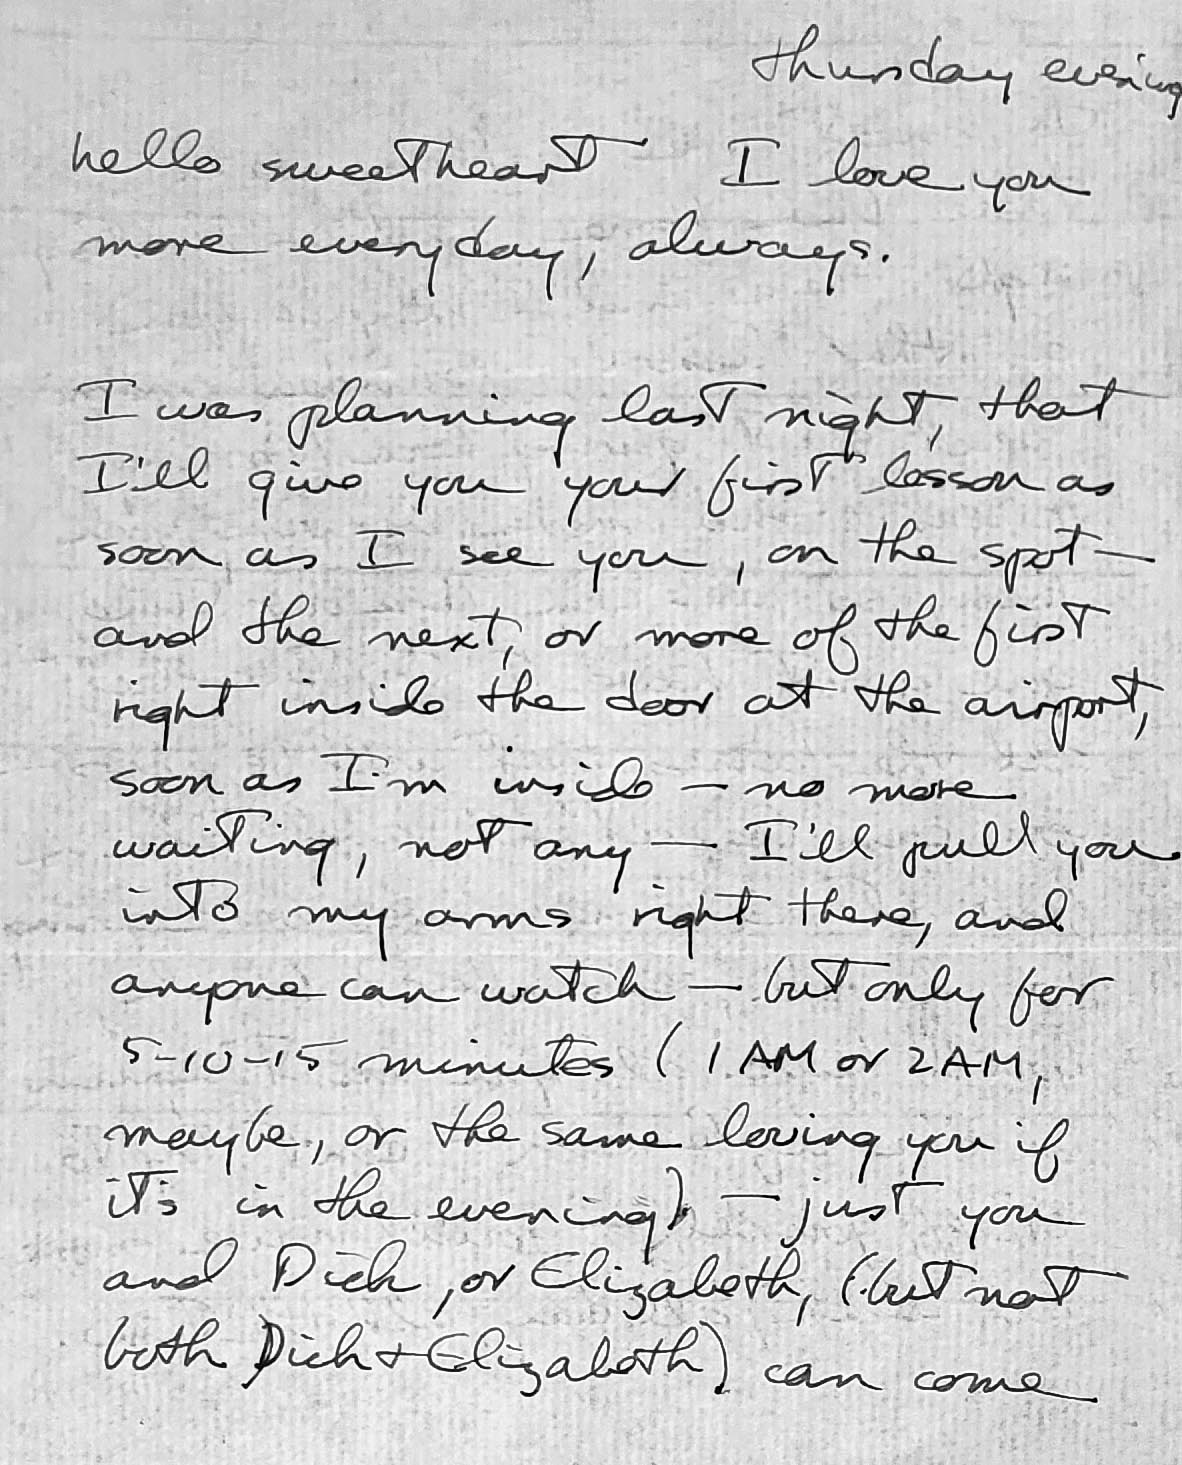 thursday evening
hello sweetheart I love you
more everyday, always.
I was planning last night, that
I'll give you your first lesson as
soon as I see you, on the spot —
and the next, or more of the first
right inside the door at the airport,
soon as I'm inside — no more
waiting, not any — I'll pull you
into my arms right there, and
anyone can watch — but only for
5-10-15 minutes (1 AM or 2 AM,
maybe, or the same loving you if
it's in the evening) — just you
and Dick, or Elizabeth, (but not
both Dick + Elizabeth) can come